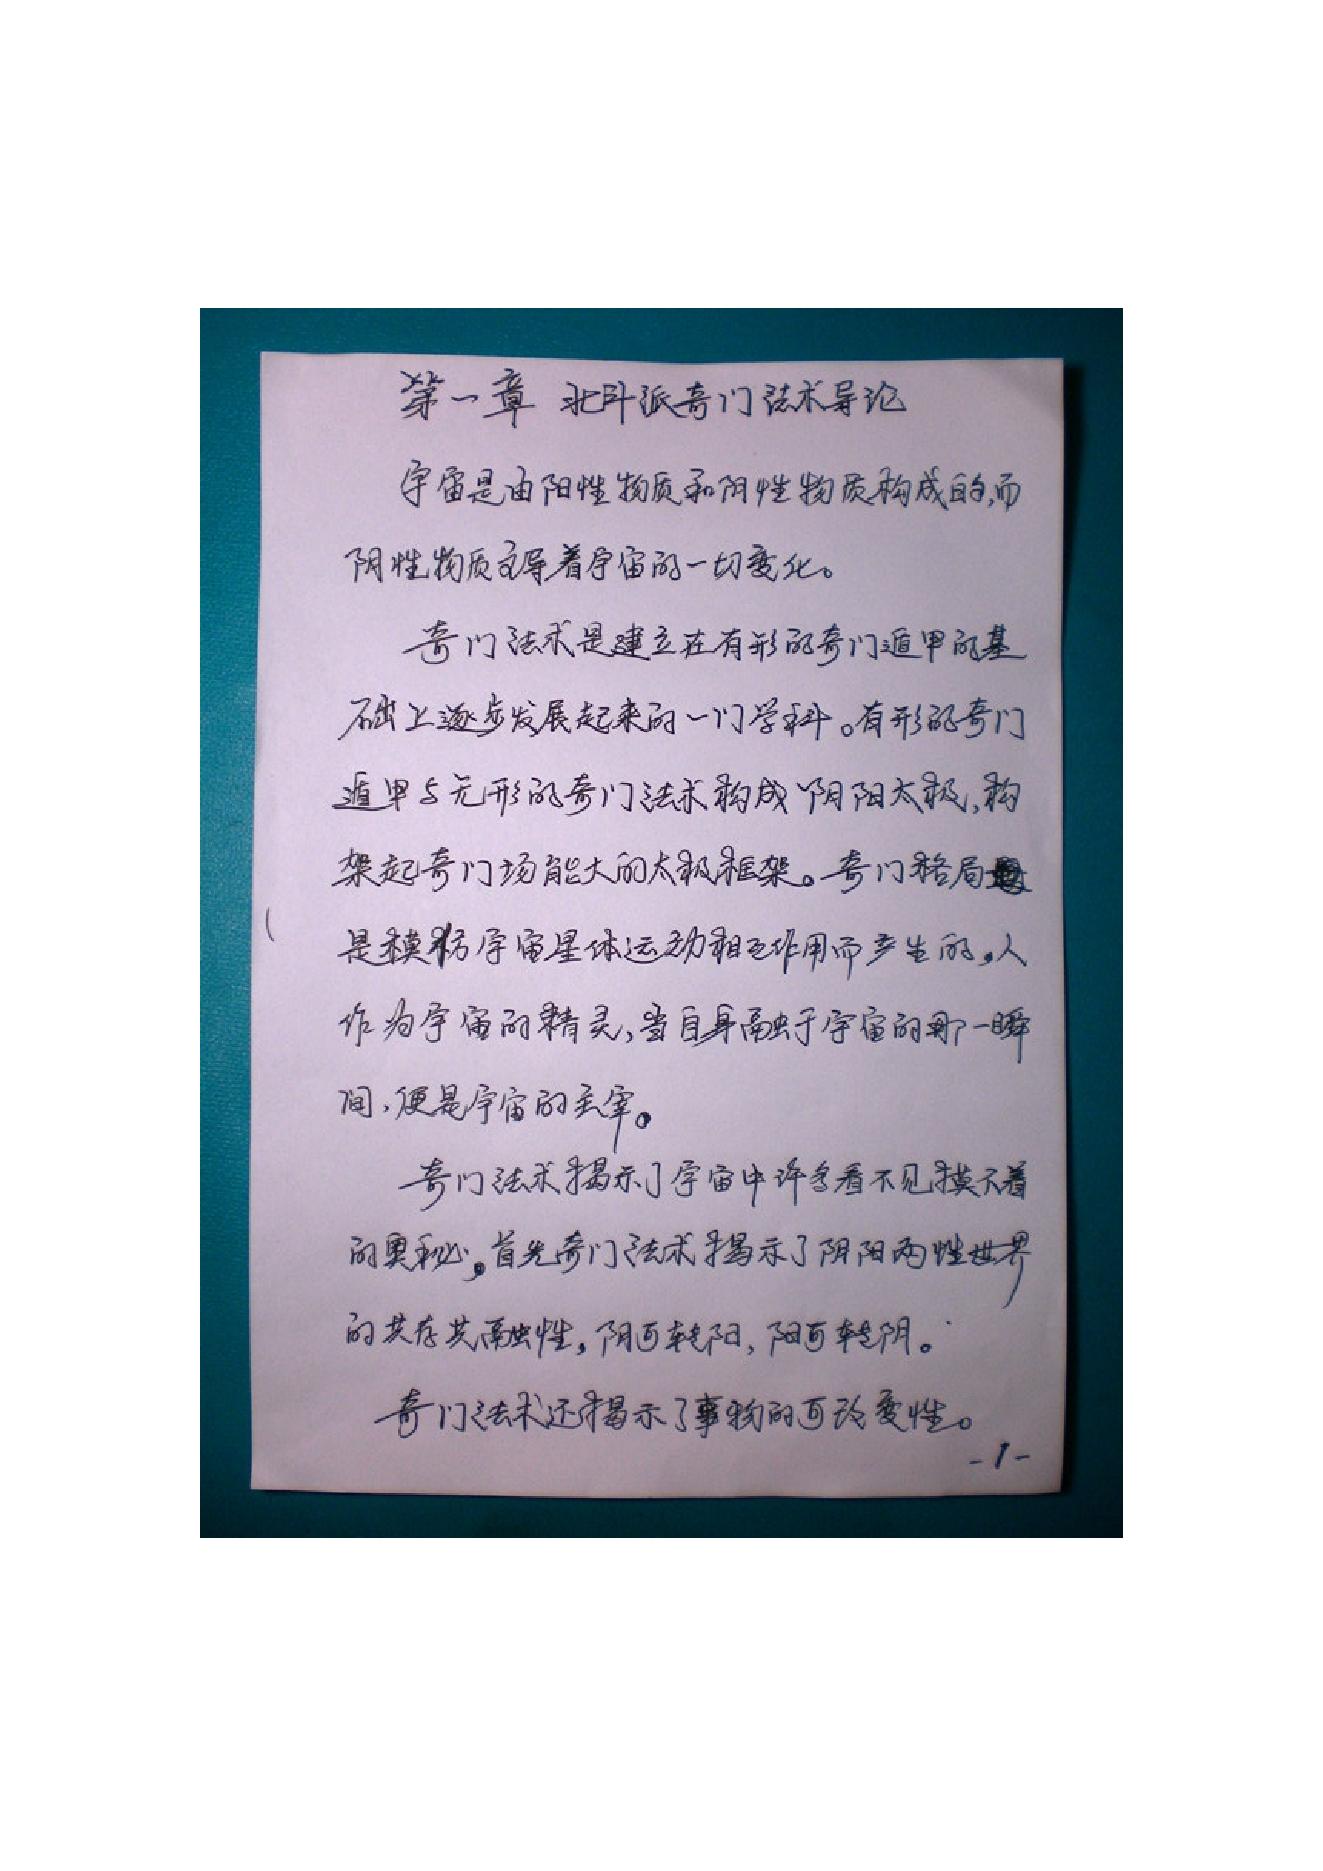 第一章 北斗派奇门法术导论
宇宙是由阳性物质和阴性物质构成的,而
阴性物质主导着宇宙的一切变化。
奇门法术是建立在有形的奇门遁甲的基
础上逐步发展起来的一门学科。有形的奇门
遁甲与无形的奇门法术构成阴阳太极,构
架起奇门场能大的太极框架。奇门格局
是模仿宇宙星体运动相互作用而产生的。人
作为宇宙的精灵,当自身融于宇宙的那一瞬
间,便是宇宙的主宰。
奇门法术揭示了宇宙中许多看不见摸不着
的奥秘。首先奇门法术揭示了阴阳两性世界
的共存共融性。阴可转阳,阳可转阴。
奇门法术还揭示了事物的可改变性。
-1-